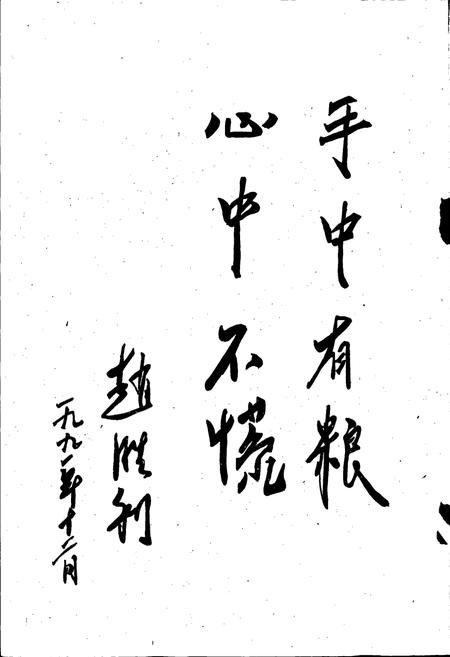 手中有粮
心中不慌
赵胜利
一九九一年十二月